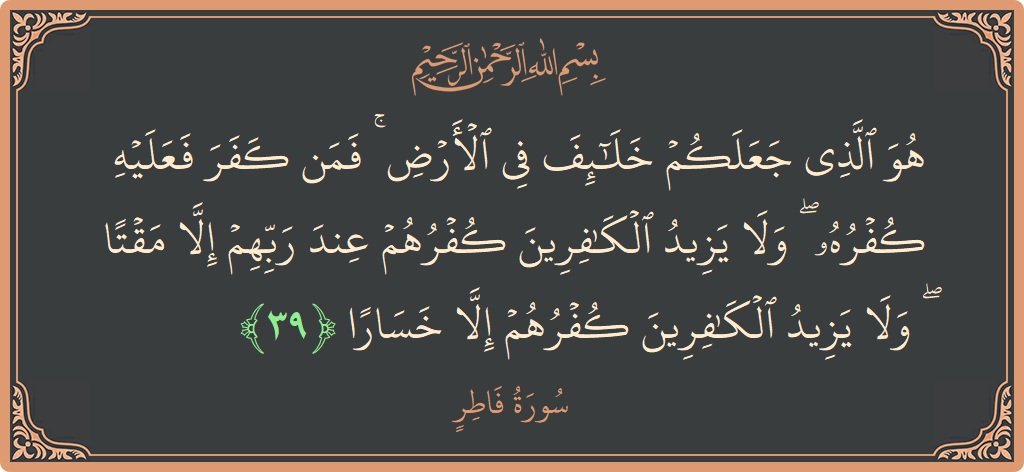 بِسْمِ اللَّهِ الرَّحْمَٰنِ الرَّحِيمِ
هُوَ ٱلَّذِى جَعَلَكُمْ خَلَـٰٓئِفَ فِى ٱلْأَرْضِ ۚ فَمَن كَفَرَ فَعَلَيْهِ
كُفْرُهُۥ ۖ وَلَا يَزِيدُ ٱلْكَـٰفِرِينَ كُفْرُهُمْ عِندَ رَبِّهِمْ إِلَّا مَقْتًا
ۖ وَلَا يَزِيدُ ٱلْكَـٰفِرِينَ كُفْرُهُمْ إِلَّا خَسَارًا ﴿٣٩﴾
سُورَةُ فَاطِرٍ